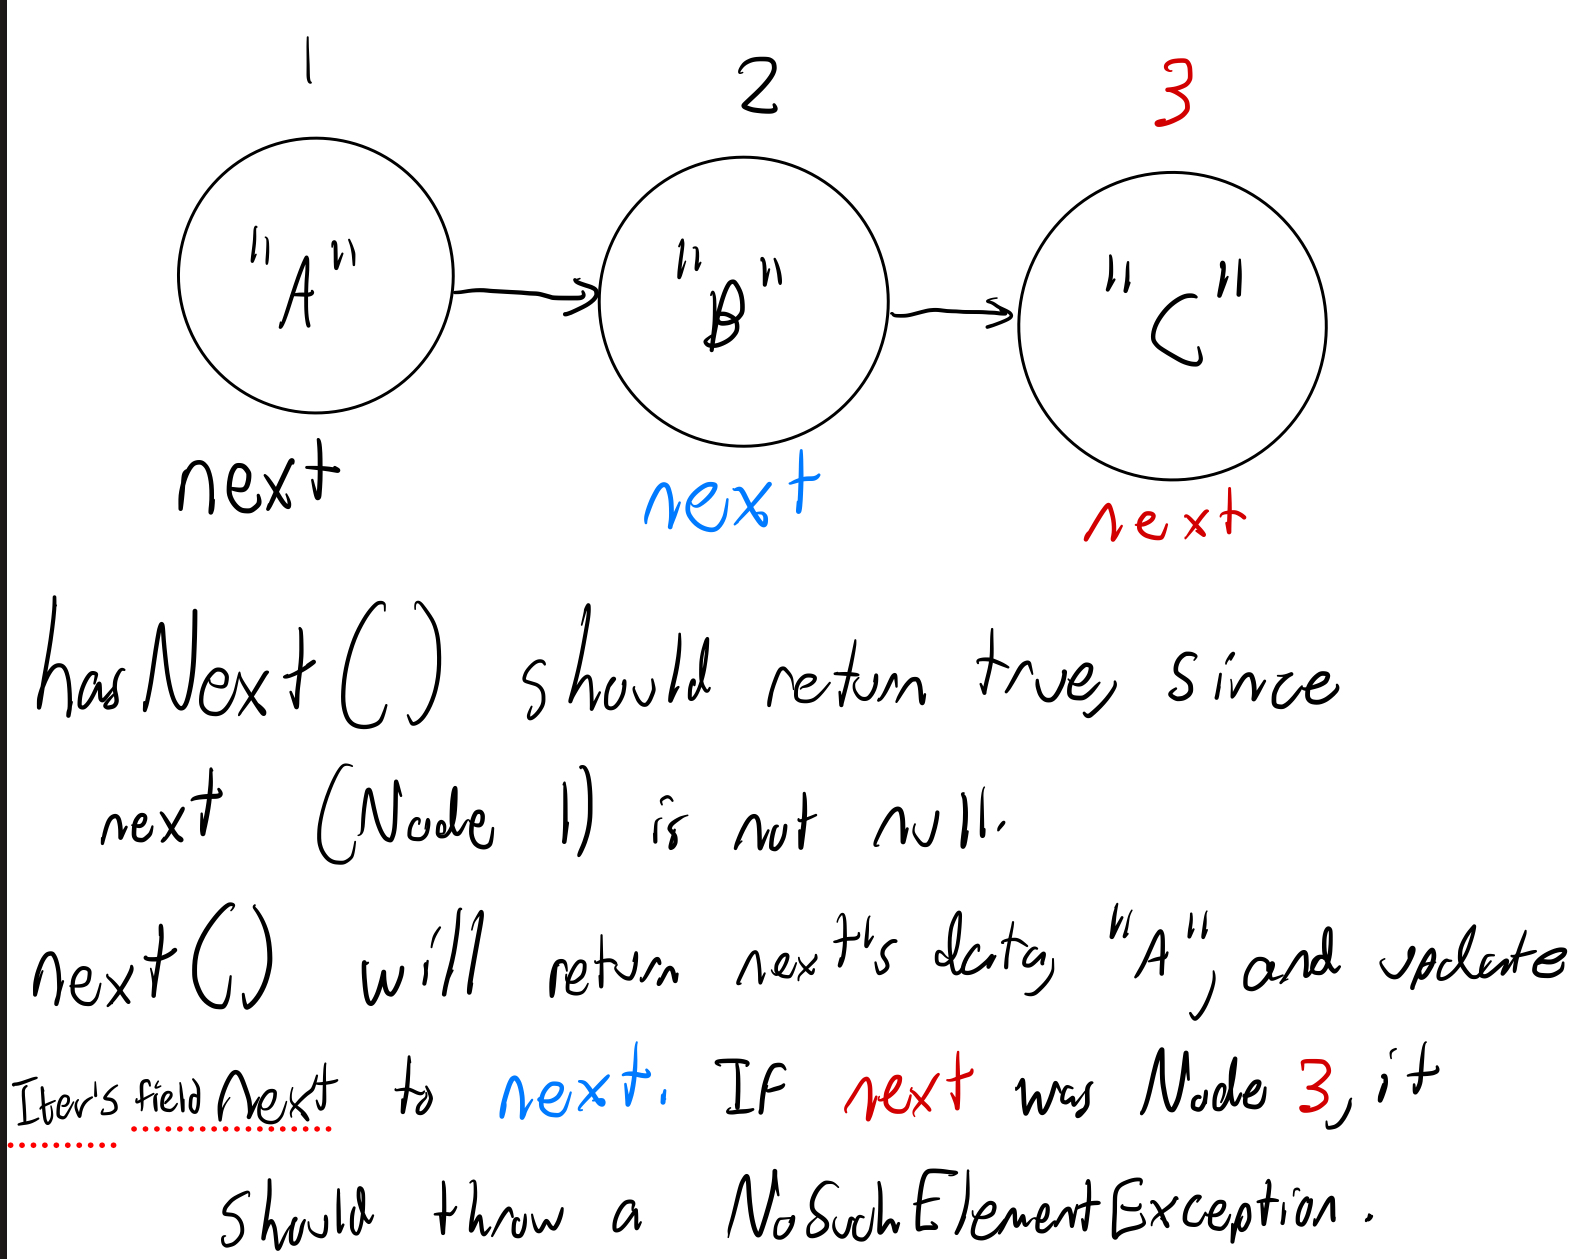 1 2 3
"A" "B" "C"
next next next
hasNext() should return true, since
next (Node 1) is not null.
next() will return next's data, "A", and update
Iter's field next to next. If next was Node 3, it
should throw a NoSuchElementException.